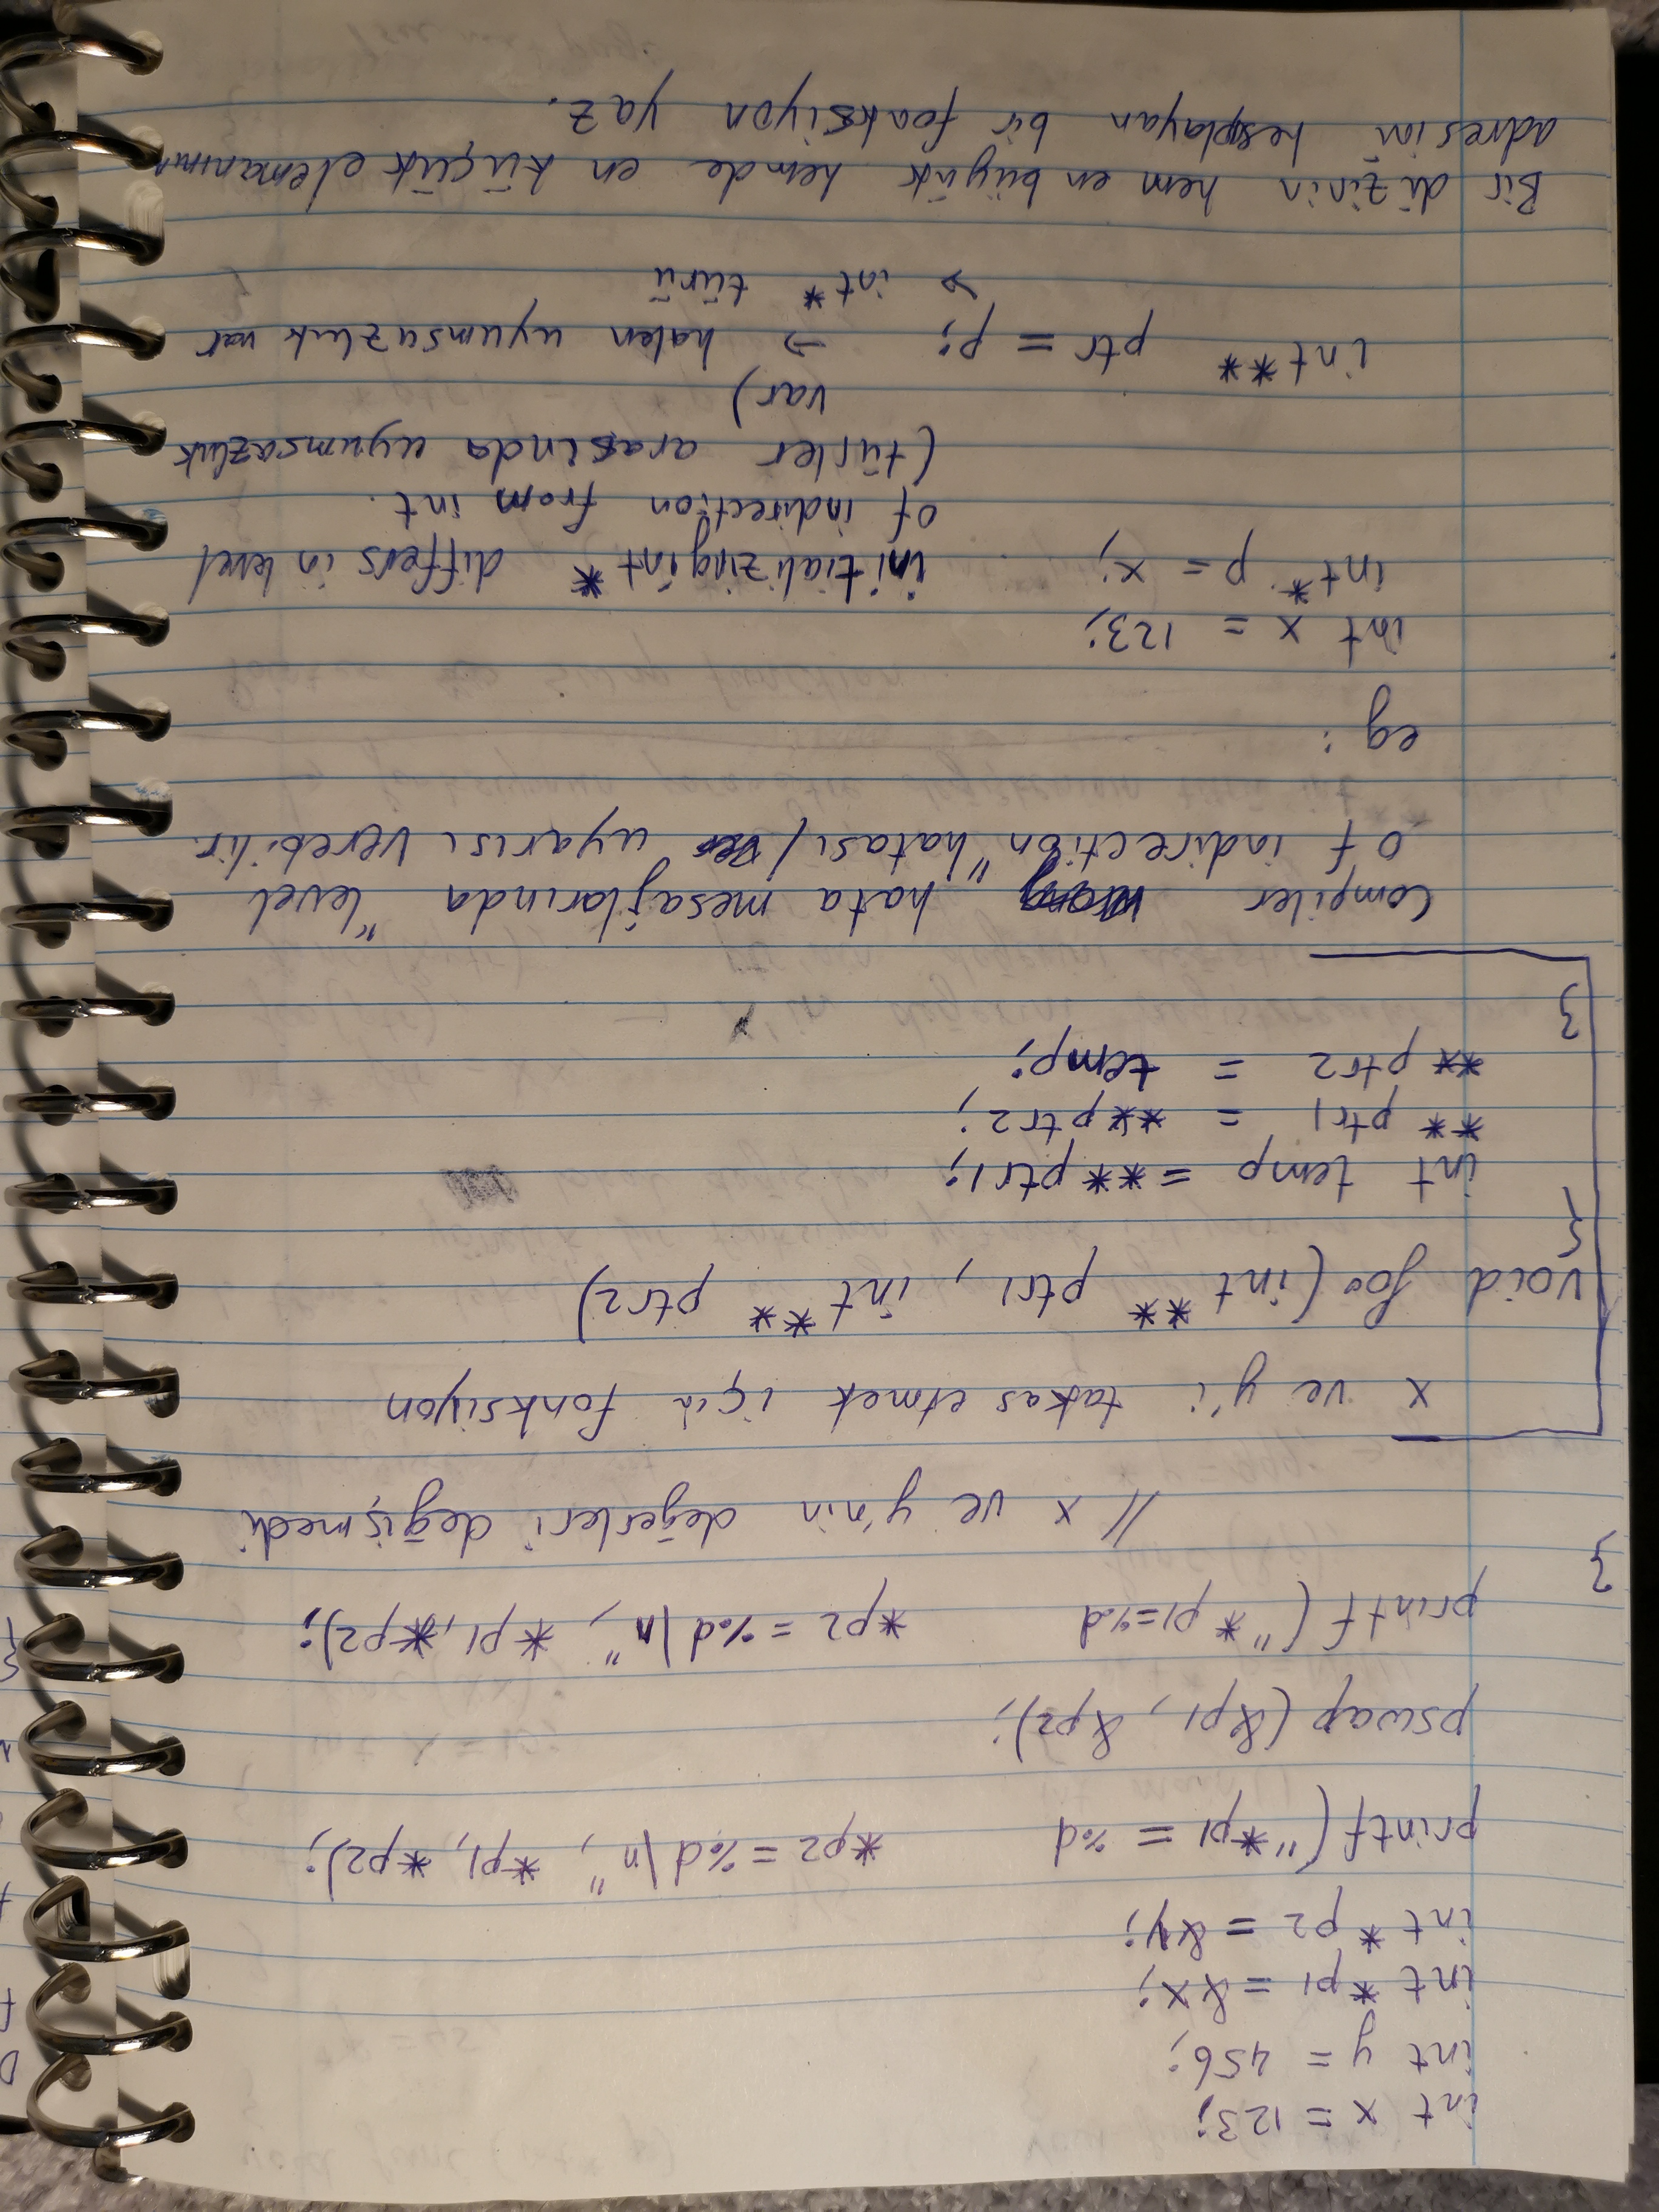 int x = 123;
int y = 456;
int *p1 = &x;
int * p2 = &y;
printf("*p1 = %d *p2 = %d \n", *p1, *p2);
pswap (&p1, &p2);
printf ("* p1=%d *p2 = %d \n", *p1, *p2);
}
// x ve y'nin değerleri değişmedi
x ve y'i takas etmek için fonksiyon
void foo (int ** ptr1, int ** ptr2)
{
int temp = ** ptr1;
** ptr1 = **ptr2;
** ptr2 = temp;
}
Compiler hata mesajlarında "level
of indirection" hatası / uyarısı verebilir.
eg :
int x = 123;
int* p = x; initializing int * differs in level
of indirection from int.
(türler arasında uyumsazluk
var)
int ** ptr = p; → halen uyumsuzluk var
↘ int* türü
Bir dizinin hem en büyük hemde en küçük elemanının
adresini hesaplayan bir fonksiyon yaz.